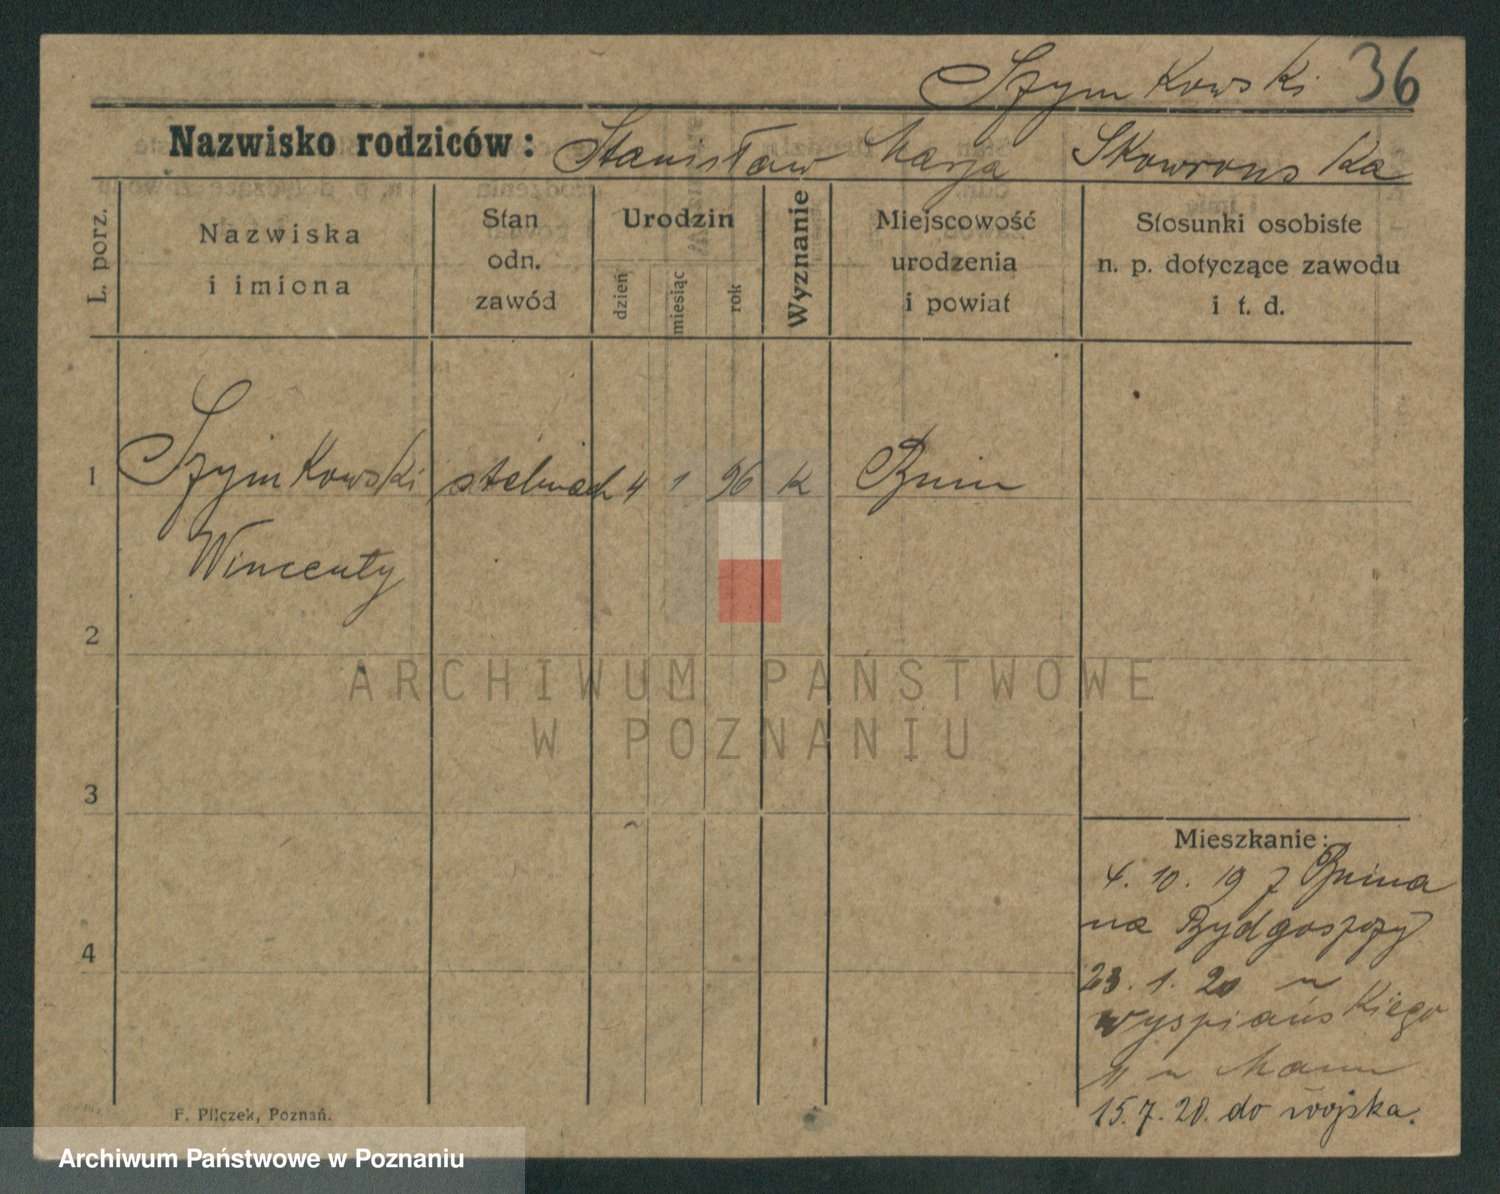 Szymkowski 36
Nazwisko rodziców: Stanisław Marja Skowronska
L. porz.
Nazwiska
i imiona
Stan
odn.
zawód
Urodzin
dzień
miesiąc
rok
Wyznanie
Miejscowość
urodzenia
i powiat
Stosunki osobiste
n. p. dotyczące zawodu
i t. d.
1 Szymkowski 4 1 96 k Bnin
Wincenty
2
3
4
ARCHIWUM PAŃSTWOWE
W POZNANIU
Mieszkanie:
4. 10. 19 z Bnina
na Bydgoszczy
23. 1. 20
Wyspiańskiego
11
15. 7. 20. do wojska.
F. Pilczek, Poznań.
Archiwum Państwowe w Poznaniu